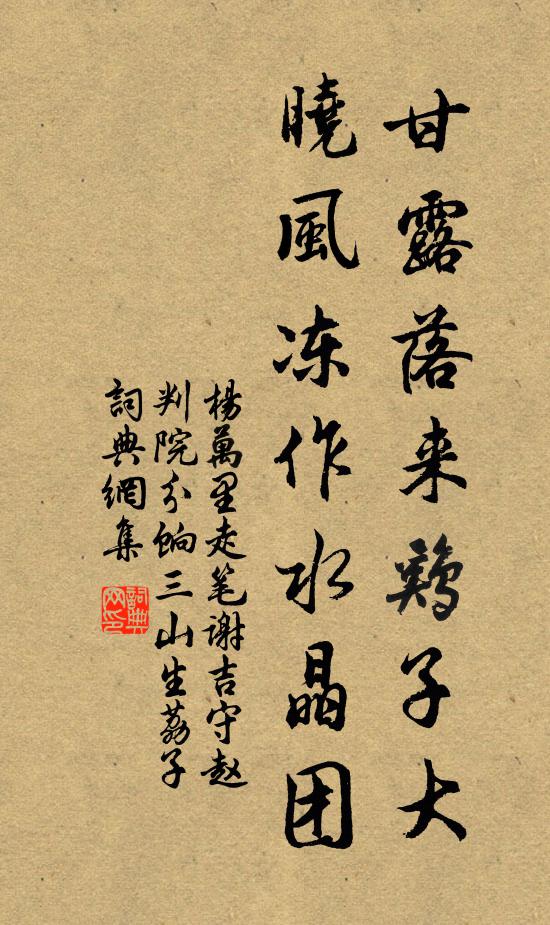 甘露落来鷄子大
曉風冻作水晶团
楊萬里走笔谢吉守赵
判院分餉三山生荔子
詞典網集
詞典网印